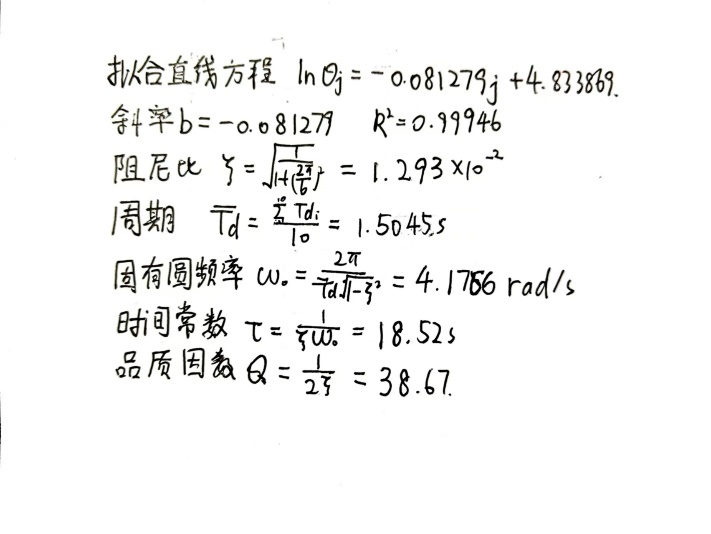 拟合直线方程 lnθj = -0.081279j + 4.833869.
斜率 b = -0.081279 R² = 0.99946
阻尼比 ζ = √(1/(1+(2π/b)²)) = 1.293×10⁻²
周期 T̄d = Σ Tdi / 10 = 1.5045s
固有圆频率 ω₀ = 2π/(T̄d√(1-ζ²)) = 4.1766 rad/s
时间常数 τ = 1/(ζω₀) = 18.52s
品质因数 Q = 1/(2ζ) = 38.67.